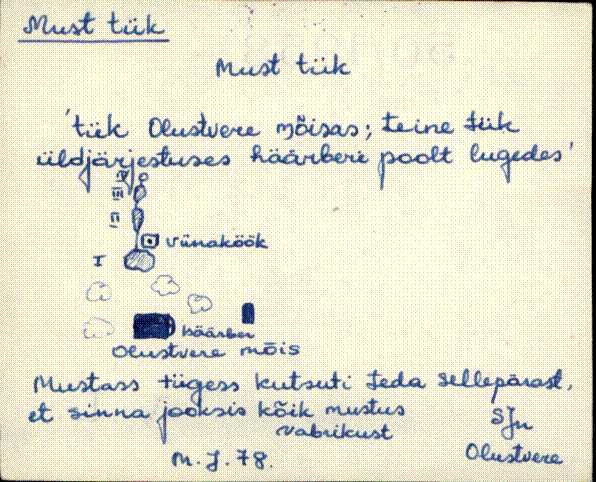 Must tiik
Must tiik
'tiik Olustvere mõisas; teine tiik
üldjärjestuses häärberi poolt lugedes'
IV
III
II
viinaköök
I
häärber
Olustvere mõis
Mustass tiigess kutsuti teda sellepärast,
et sinna jooksis kõik mustus
vabrikust
SJn
Olustvere
M. J. 78.